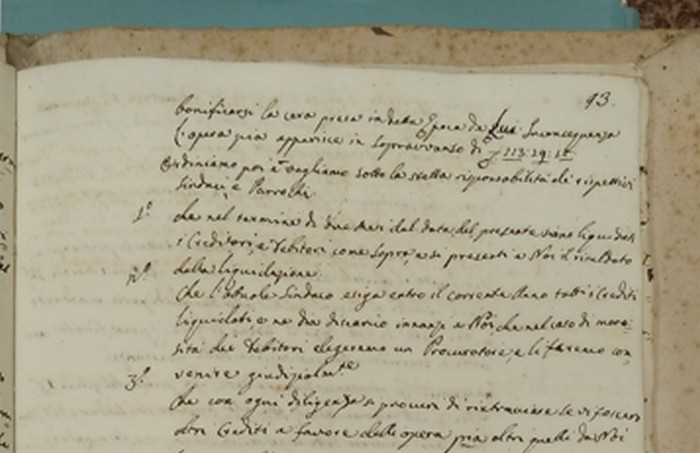 93.
bonificarsi la cera presa in detta Epoca da Lui. In conseguenza
l'opera pia apparisce in sopravvanso di 113:29:
Ordiniamo poi e vogliamo sotto la stretta risponsabilità dei rispettivi
Sindaci, e Parrochi
1° che nel termine di due Mesi dal data del presente siano liquidati
i Creditori, e Debitori come sopra, e si presenti a Noi il risultato
della liquidazione.
2° Che l'attuale Sindaco esiga entro il corrente Anno tutti i Crediti
liquidati, e ne dia discarico innanzi a Noi che nel caso di moro=
sità dei Debitori elegeremo un Procuratore, e li faremo con
venire giudizialmte
3° Che con ogni diligenza si procuri di rintracciare se vi fossero
altri Crediti a favore dell'opera pia oltri quelli da Noi